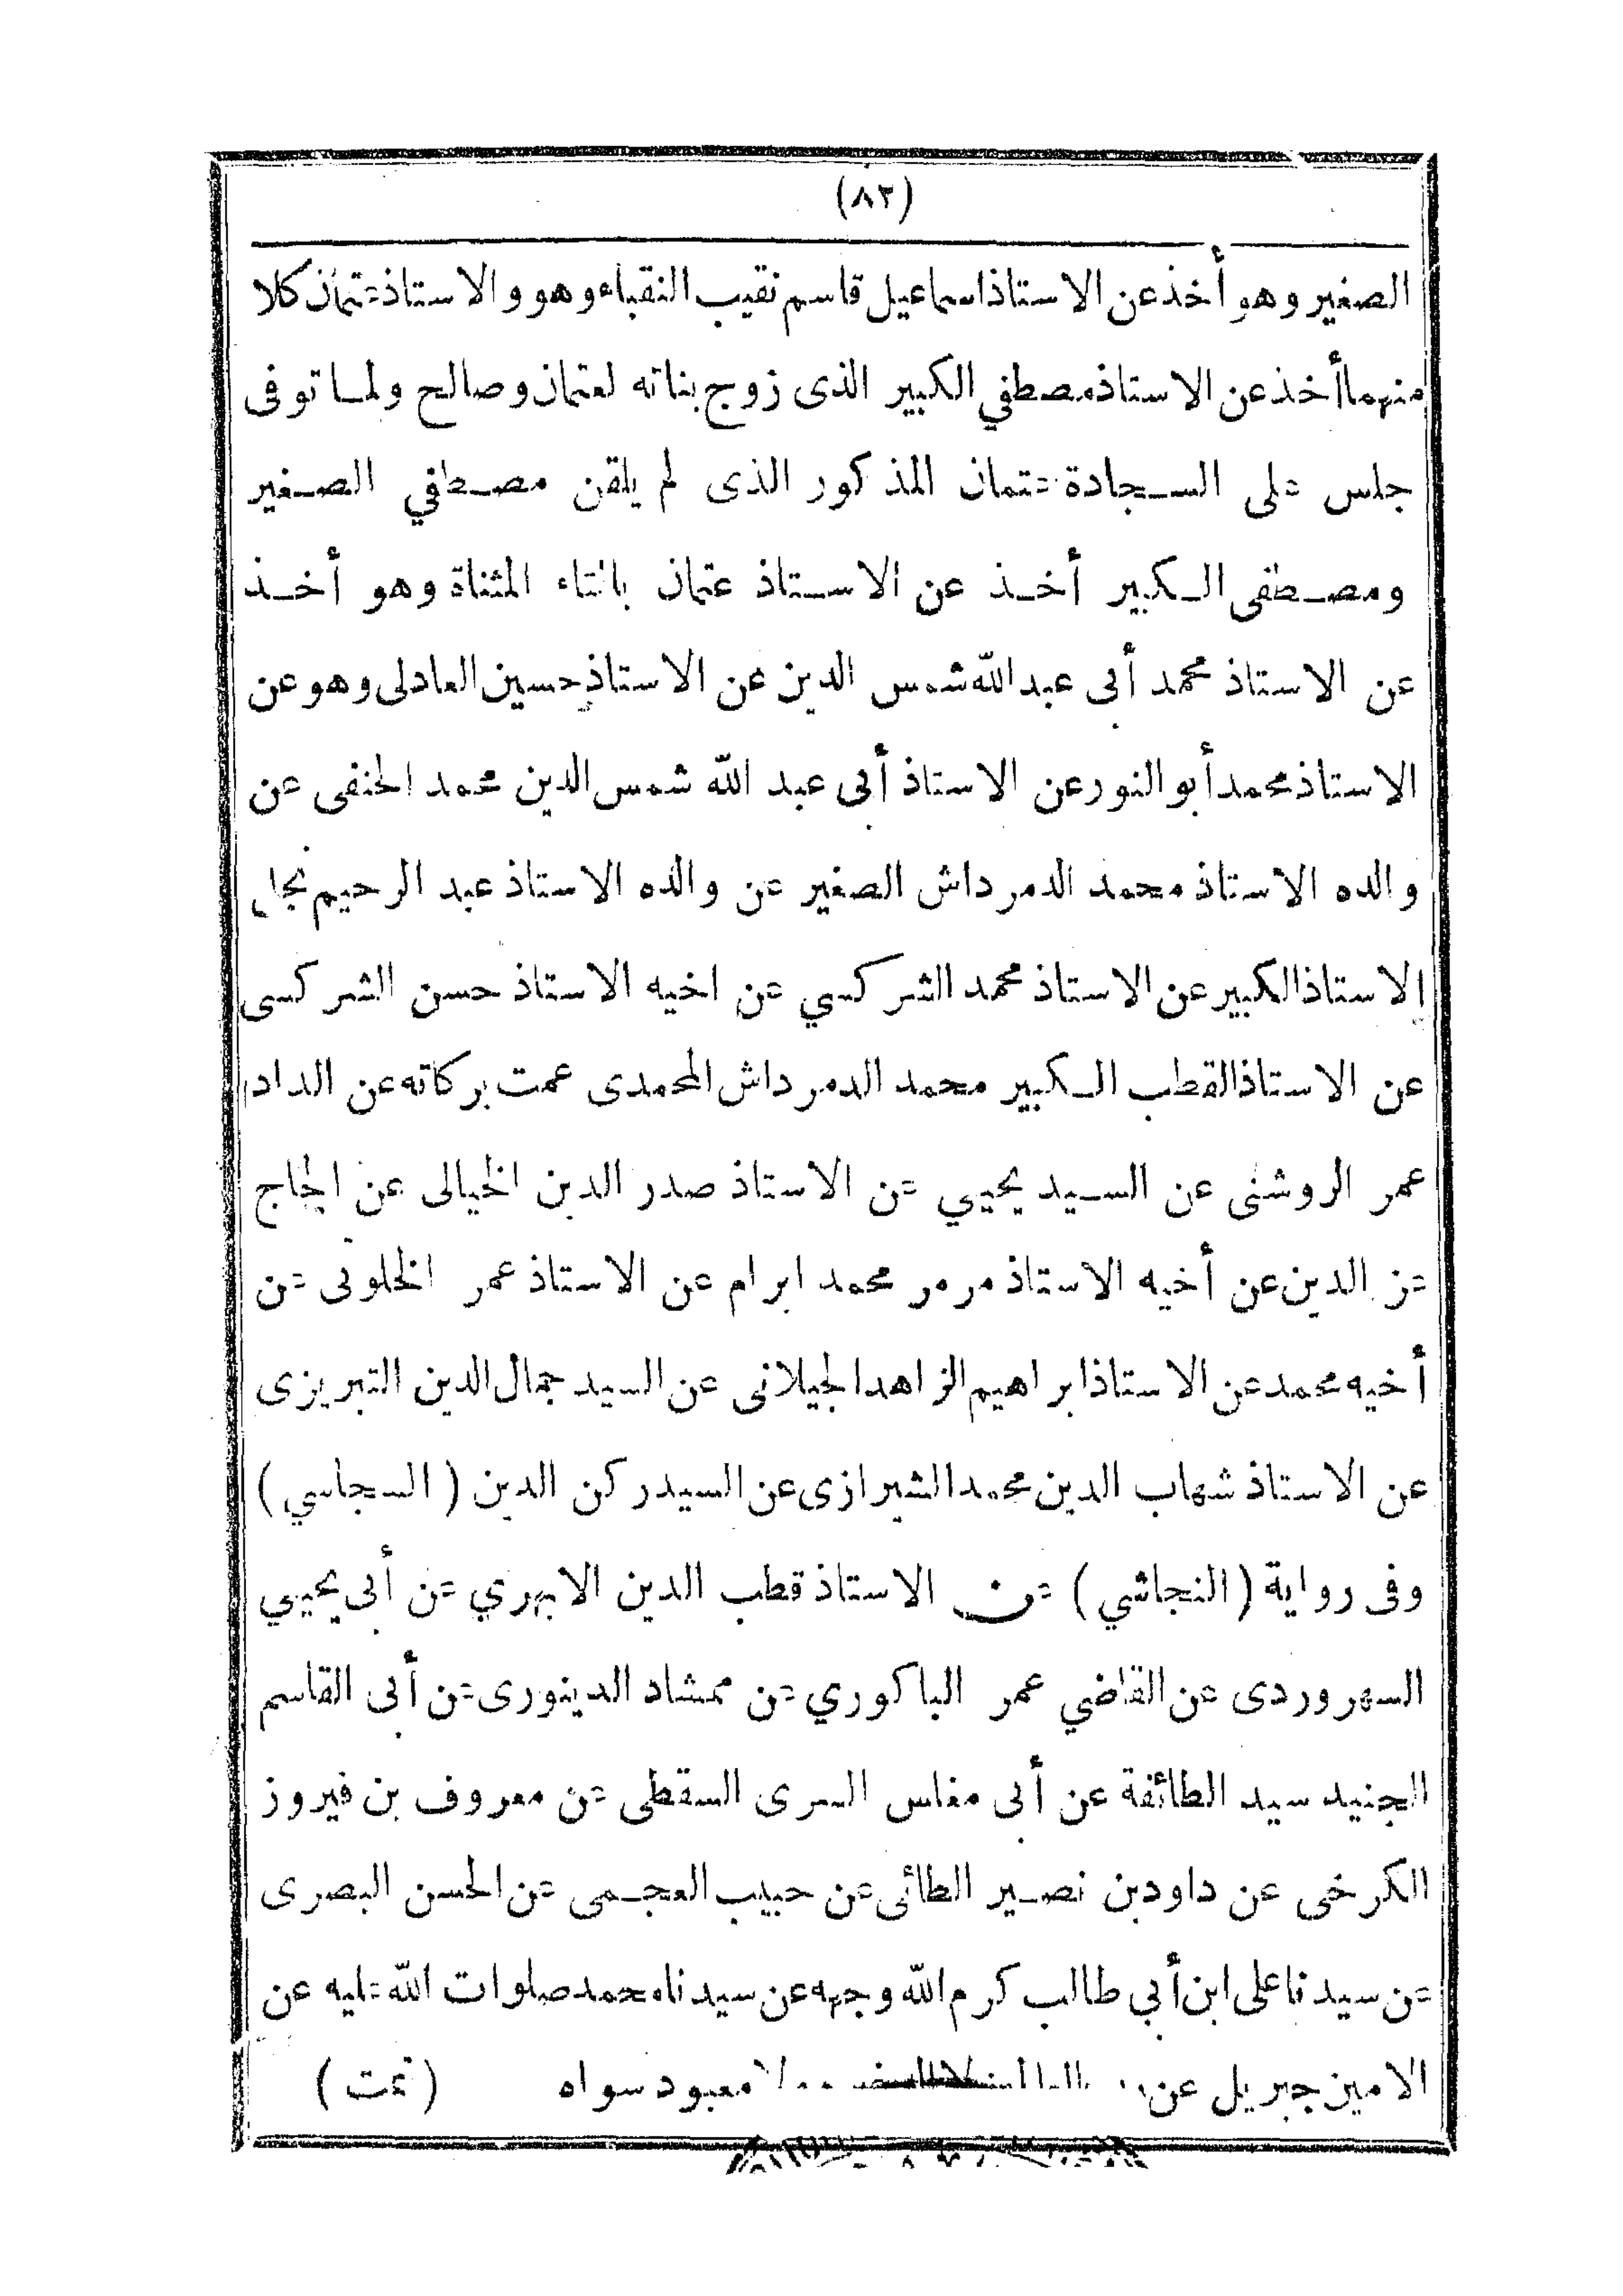 (٨٣)
الصغير وهو أخذ عن الاستاذ اسماعيل قاسم نقيب النقباء وهو والاستاذ عتمان كلا
منهما أخذ عن الاستاذ مصطفي الكبير الذى زوج بناته لعتمان وصالح ولما توفى
جلس على السجادة عتمان المذكور الذى لم يلقن مصطفي الصغير
ومصطفى الكبير أخذ عن الاستاذ عتمان بالتاء المثناة وهو أخذ
عن الاستاذ محمد أبى عبد الله شمس الدين عن الاستاذ حسين العادلى وهو عن
الاستاذ محمد أبو النور عن الاستاذ أبى عبد الله شمس الدين محمد الحنفى عن
والده الاستاذ محمد الدمرداش الصغير عن والده الاستاذ عبد الرحيم نجل
الاستاذ الكبير عن الاستاذ محمد الشركسي عن اخيه الاستاذ حسن الشركسى
عن الاستاذ القطب الكبير محمد الدمرداش المحمدى عمت بركاته عن الداد
عمر الروشنى عن السيد يحيي عن الاستاذ صدر الدين الخيالى عن الحاج
عز الدين عن أخيه الاستاذ مرمر محمد ابرام عن الاستاذ عمر الخلوتى عن
أخيه محمد عن الاستاذ ابراهيم الزاهد الجيلانى عن السيد جمال الدين التبريزى
عن الاستاذ شهاب الدين محمد الشيرازى عن السيد ركن الدين (السجاسي)
وفى رواية (النجاشي) عن الاستاذ قطب الدين الابهري عن أبى يحيي
السهروردى عن القاضي عمر الباكوري عن ممشاد الدينورى عن أبى القاسم
الجنيد سيد الطائفة عن أبى مغلس السرى السقطى عن معروف بن فيروز
الكرخى عن داود بن نصير الطائى عن حبيب العجمى عن الحسن البصرى
عن سيدنا على ابن أبي طالب كرم الله وجهه عن سيدنا محمد صلوات الله عليه عن
الامين جبريل عن معبود سواه (تمت)